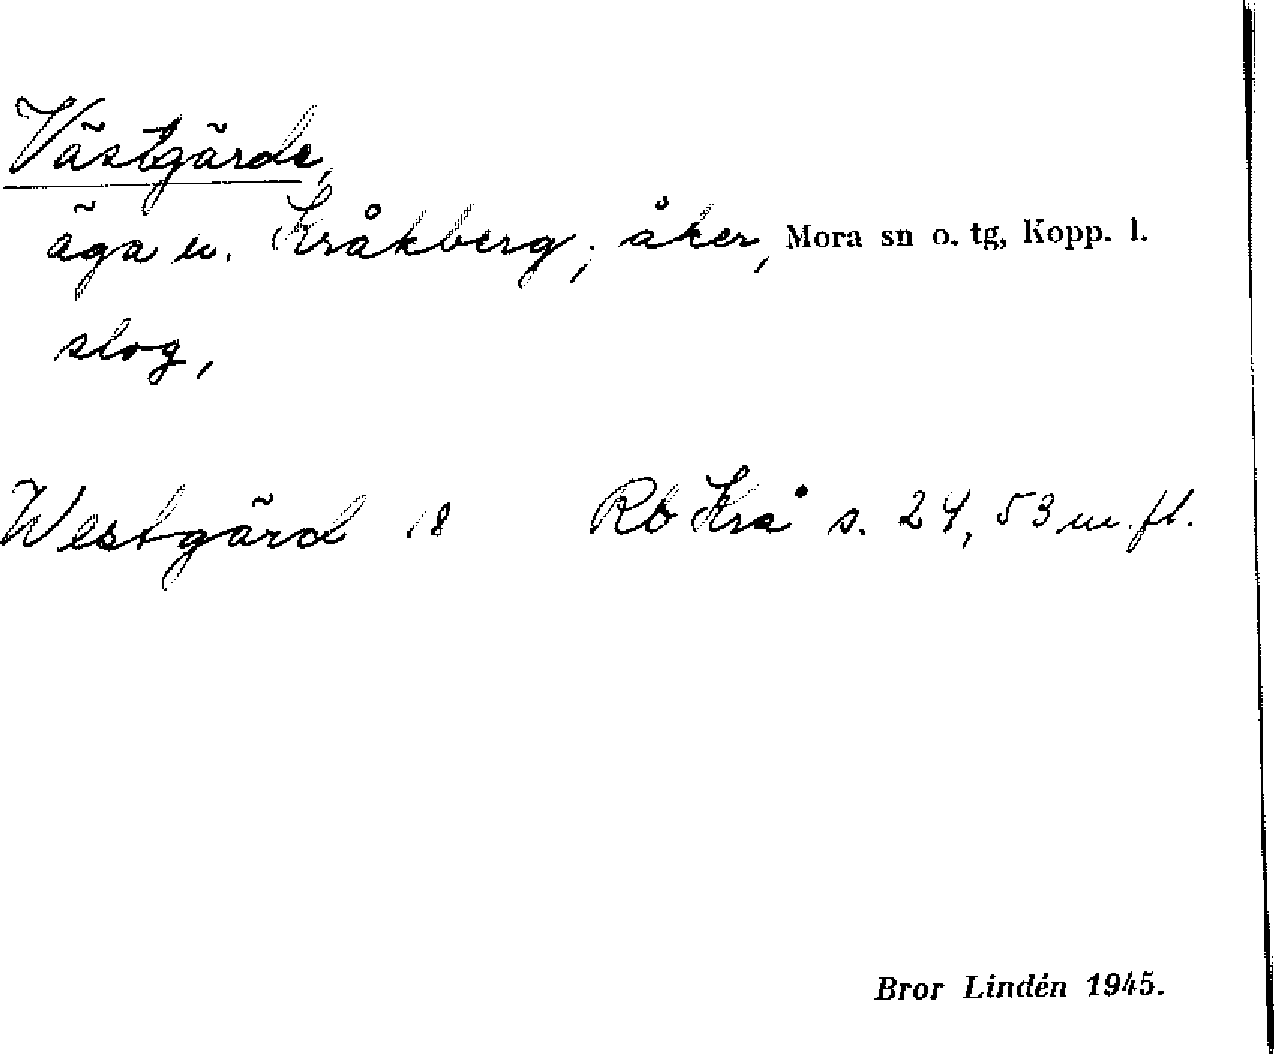 Västgärde,
äga u. Kråkberg; åker, Mora sn o. tg, Kopp. l.
slog,
Westgärd 18 Rb Krå s. 24, 53 m. fl.
Bror Lindén 1945.